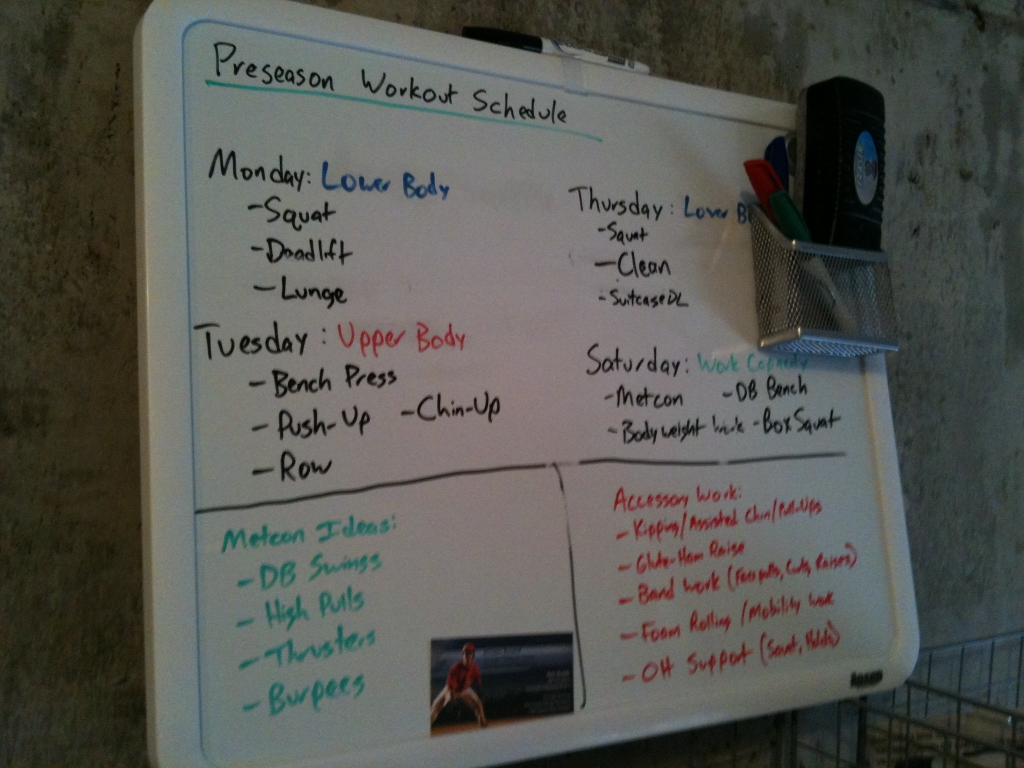 Preseason Workout Schedule
Monday: Lower Body
- Squat
- Deadlift
- Lunge
Tuesday: Upper Body
- Bench Press
- Push-Up - Chin-Up
- Row
Thursday: Lower B
- Squat
- Clean
- Suitcase DL
Saturday: Work Capacity
- Metcon - DB Bench
- Bodyweight Work - Box Squat
Metcon Ideas:
- DB Swings
- High Pulls
- Thrusters
- Burpees
Accessory Work:
- Kipping/Assisted Chin/Pull-Ups
- Glute-Ham Raise
- Band Work (Facepulls, Curls, Raises)
- Foam Rolling / Mobility Work
- OH Support (Squat, Holds)